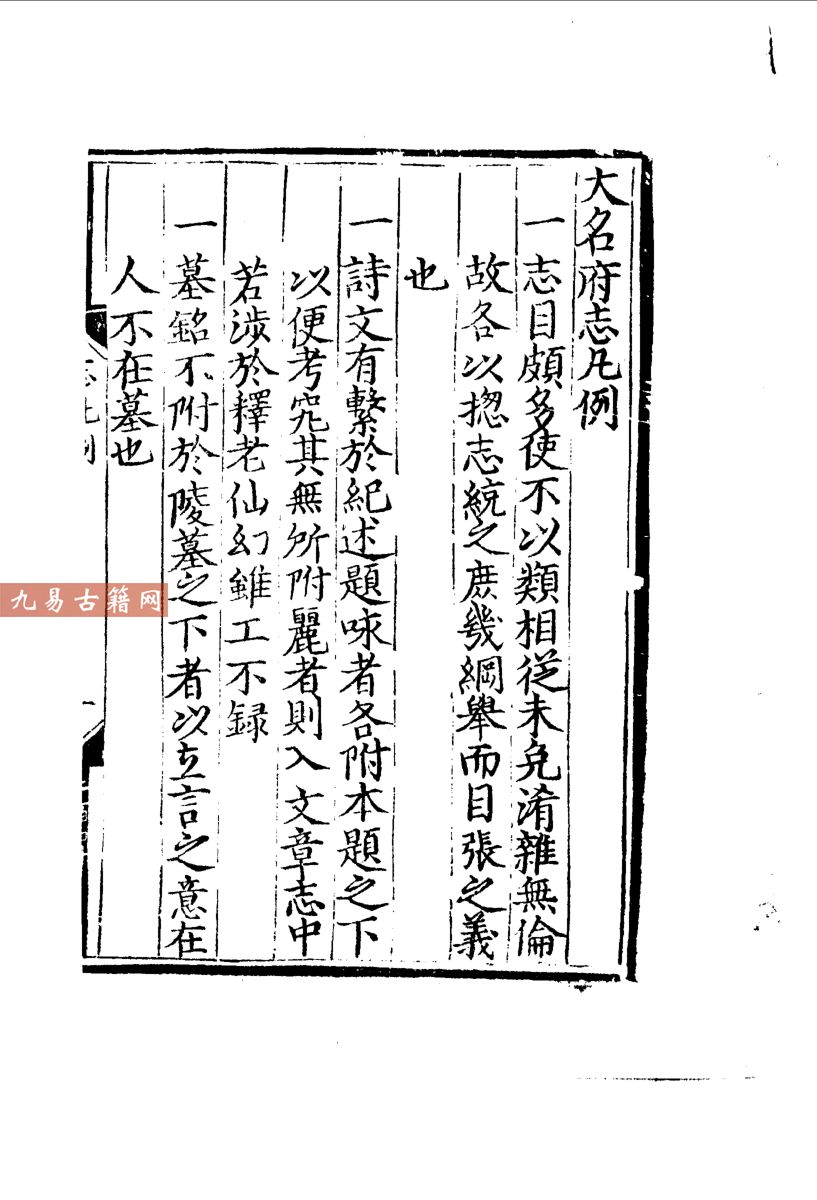 大名府志凡例
一志目頗多使不以類相從未免淆雜無倫
故各以揔志統之庶幾綱舉而目張之義
也
一詩文有繫於紀述題咏者各附本題之下
以便考究其無所附麗者則入文章志中
若涉於釋老仙幻雖工不録
一墓銘不附於陵墓之下者以立言之意在
人不在墓也
九易古籍网